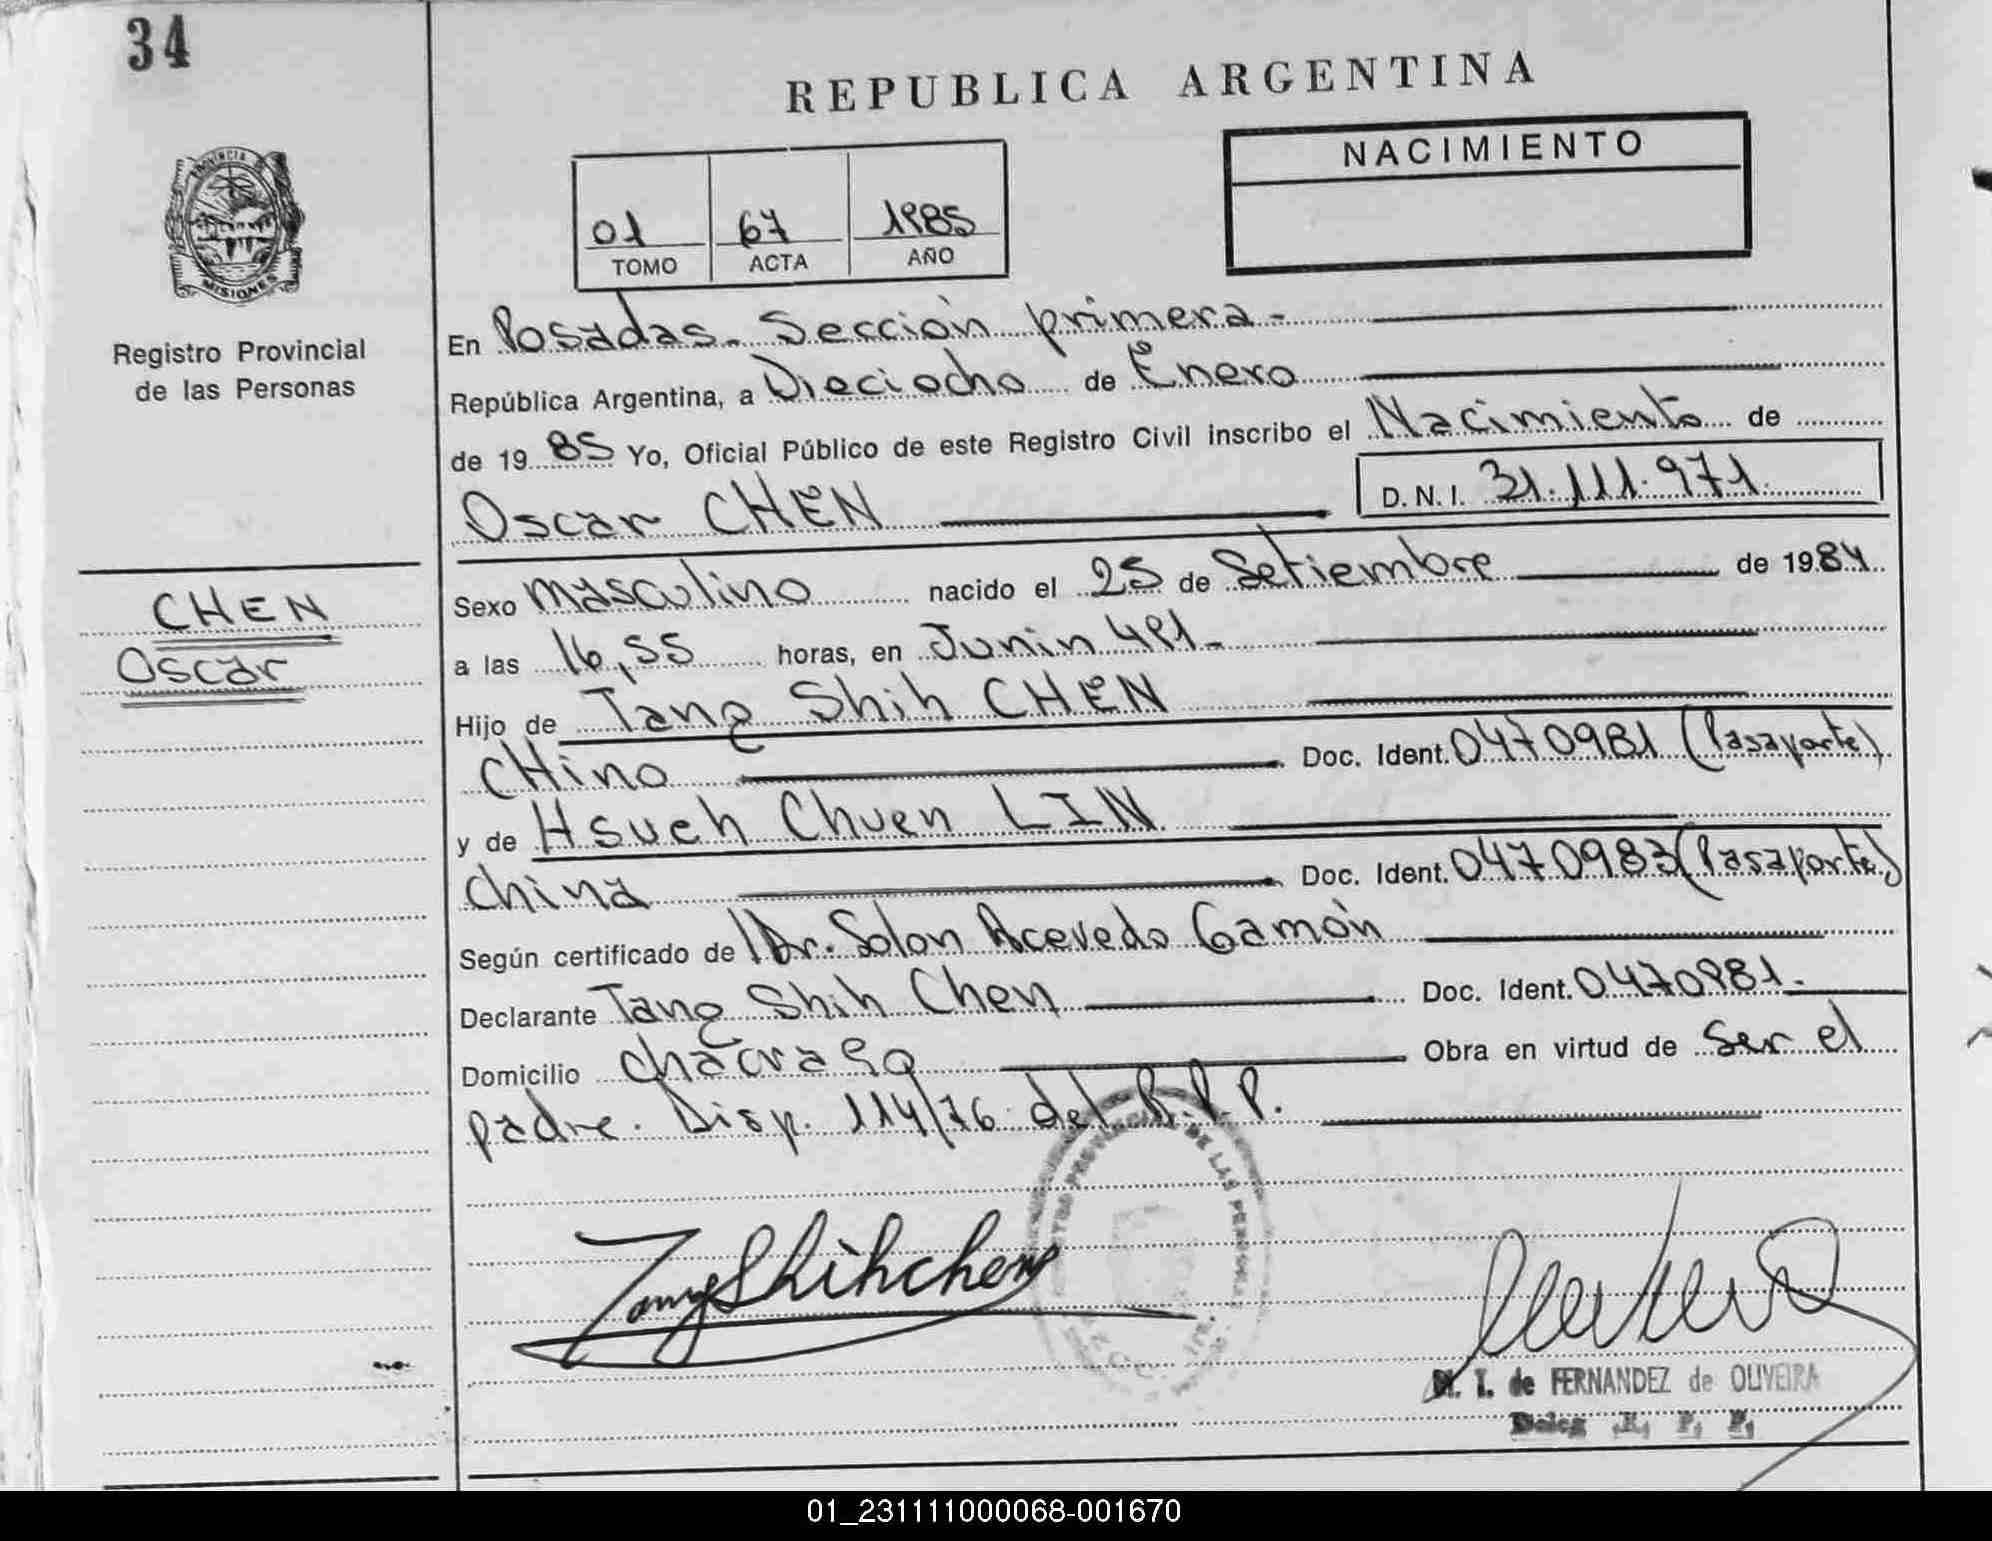 34
REPUBLICA ARGENTINA
PROVINCIA DE
MISIONES
Registro Provincial
de las Personas
01 67 1985
TOMO ACTA AÑO
NACIMIENTO
En Posadas. Sección primera.-
República Argentina, a Dieciocho de Enero
de 1985 Yo, Oficial Público de este Registro Civil inscribo el Nacimiento de
Oscar CHEN D.N.I. 31.111.971.
CHEN
Oscar
Sexo masculino nacido el 25 de Setiembre de 1984
a las 16,55 horas, en Junin 491.-
Hijo de Tang Shih CHEN
CHino Doc. Ident. 0470981 (Pasaporte)
y de Hsueh Chuen LIN
china Doc. Ident. 0470983 (Pasaporte)
Según certificado de Dr. Solon Acevedo Gamón
Declarante Tang Shih Chen Doc. Ident. 0470981.-
Domicilio chacra Obra en virtud de ser el
padre. Disp. 114/76 del R.P.P.
REGISTRO PROVINCIAL DE LAS PERSONAS
TangShihchen
M. I. de FERNANDEZ de OLIVEIRA
Deleg R. P. P.
01_231111000068-001670